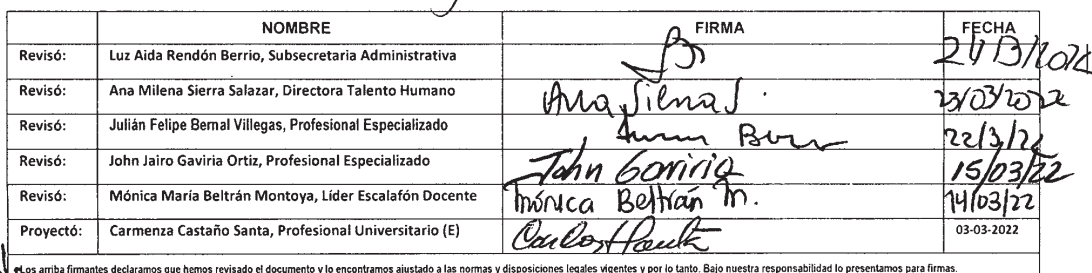 NOMBRE FIRMA FECHA
Revisó: Luz Aida Rendón Berrio, Subsecretaria Administrativa
Revisó: Ana Milena Sierra Salazar, Directora Talento Humano Ana Sierra S. 23/03/2022
Revisó: Julián Felipe Bernal Villegas, Profesional Especializado 22/3/22
Revisó: John Jairo Gaviria Ortiz, Profesional Especializado John Gaviria 15/03/22
Revisó: Mónica María Beltrán Montoya, Líder Escalafón Docente Mónica Beltrán M. 14/03/22
Proyectó: Carmenza Castaño Santa, Profesional Universitario (E) 03-03-2022
Los arriba firmantes declaramos que hemos revisado el documento y lo encontramos ajustado a las normas y disposiciones legales vigentes y por lo tanto. Bajo nuestra responsabilidad lo presentamos para firmas.